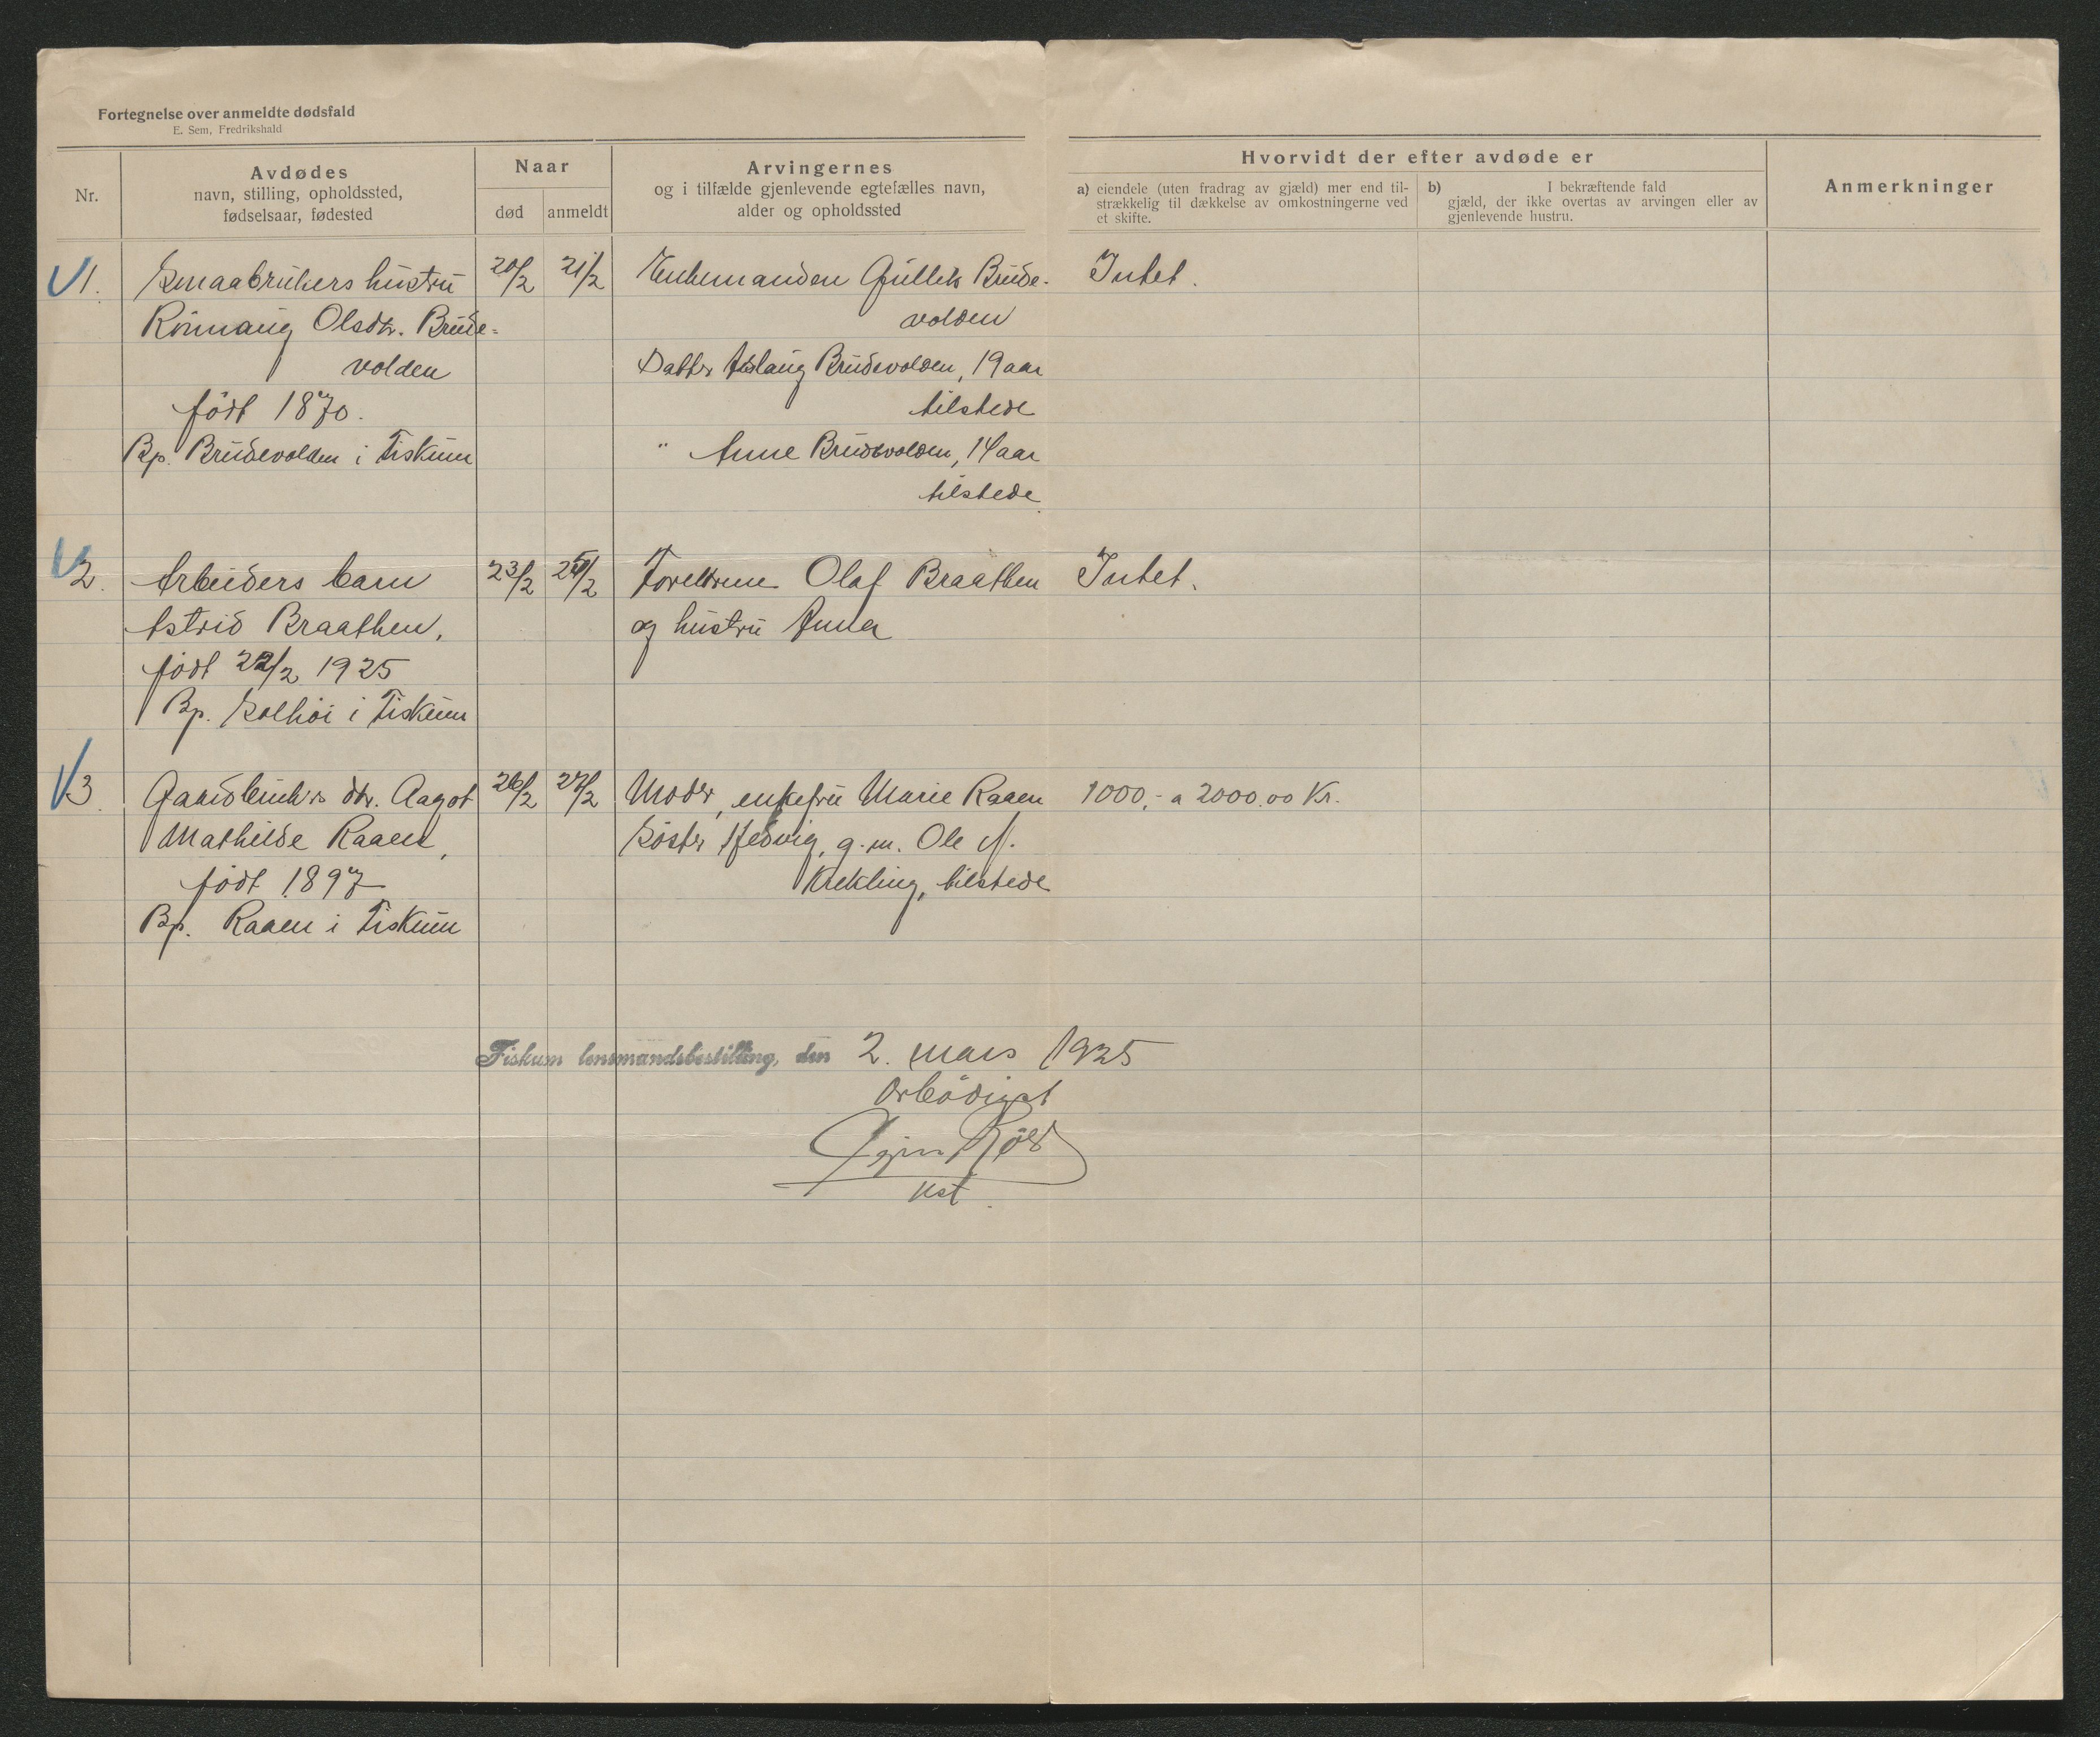 Fortegnelse over anmeldte dødsfald
E. Sem, Fredrikshald
Nr.
Avdødes
navn, stilling, opholdssted,
fødselsaar, fødested
Naar
død
anmeldt
Arvingernes
og i tilfælde gjenlevende egtefælles navn,
alder og opholdssted
Hvorvidt der efter avdøde er
a) eiendele (uten fradrag av gjæld) mer end til-
strækkelig til dækkelse av omkostningerne ved
et skifte.
b) I bekræftende fald
gjæld, der ikke overtas av arvingen eller av
gjenlevende hustru.
Anmerkninger
1. Smaabrukers hustru 20/2 21/2 Enkemanden Gullik Brude- Intet.
Rønnaug Olsdtr. Brude- volden
volden Datter Aslaug Brudevolden, 19 aar
født 1870. tilstede
Bp. Brudevolden i Fiskum " Anne Brudevolden, 14 aar
tilstede
2. Arbeiders barn 23/2 25/2 Forældrene Olaf Braathen Intet.
Astrid Braathen, og hustru Anna
født 22/2 1925
Bp. Solhøi i Fiskum
3. Gaardbruker dtr. Aagot 26/2 27/2 Moder, enkefru Marie Raaen 1000,- a 2000.00 Kr.
Mathilde Raaen, Søster Hedvig, g.m. Ole N.
født 1897 Krekling, tilstede
Bp. Raaen i Fiskum
Fiskum lensmandsbestilling, den 2. mars 1925
Ærbødigst
kst.